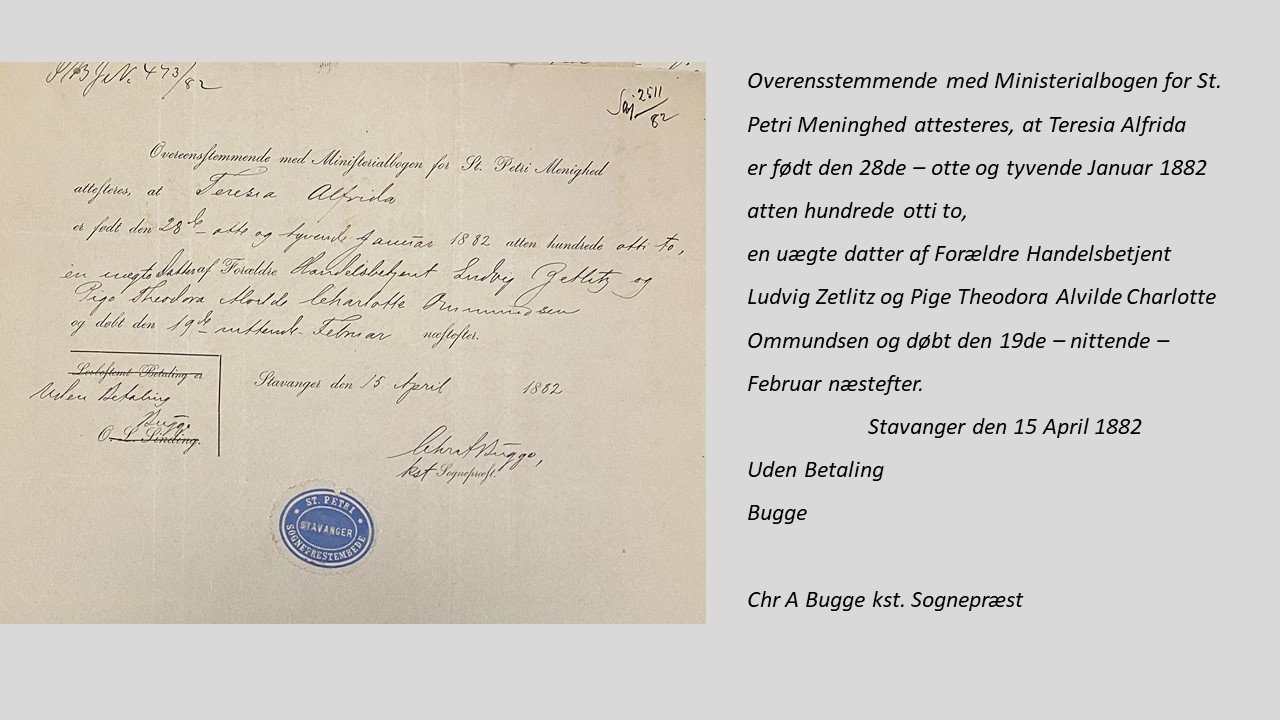 473/82
2511
82
Overeensstemmende med Ministerialbogen for St. Petri Menighed
attesteres, at Teresia Alfrida
er født den 28de otte og tyvende Januar 1882 atten hundrede otti to,
en uægte Datter af Forældre Handelsbetjent Ludvig Zetlitz og
Pige Theodora Alvilde Charlotte Ommundsen
og døbt den 19de nittende Februar næstefter.
Betaling er
Uden Betaling
Bugge
O. L. Sinding.
Stavanger den 15 April 1882
Chr A Bugge,
kst Sognepræst.
ST. PETRI
STAVANGER
SOGNEPRESTEMBEDE
Overensstemmende med Ministerialbogen for St.
Petri Meninghed attesteres, at Teresia Alfrida
er født den 28de – otte og tyvende Januar 1882
atten hundrede otti to,
en uægte datter af Forældre Handelsbetjent
Ludvig Zetlitz og Pige Theodora Alvilde Charlotte
Ommundsen og døbt den 19de – nittende –
Februar næstefter.
Stavanger den 15 April 1882
Uden Betaling
Bugge
Chr A Bugge kst. Sognepræst